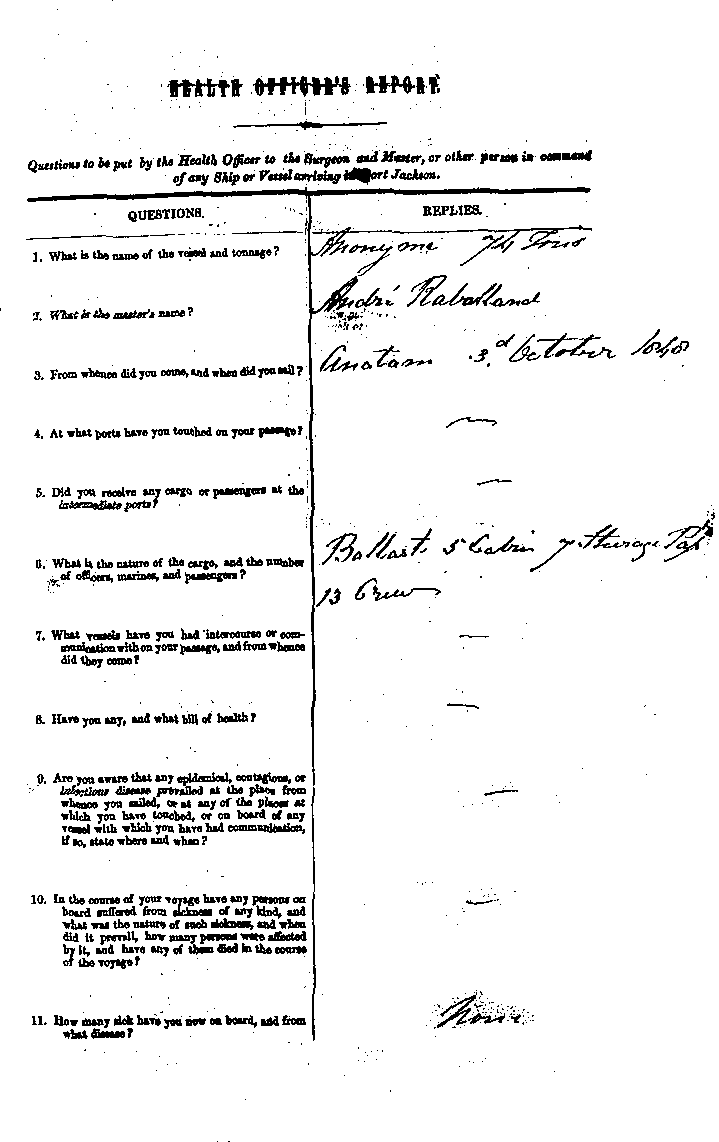 HEALTH OFFICER'S REPORT.
Questions to be put by the Health Officer to the Surgeon and Master, or other person in command
of any Ship or Vessel arriving in Port Jackson.
QUESTIONS.
REPLIES.
1. What is the name of the vessel and tonnage?
Anonyme 74 Tons
2. What is the master's name?
André Raballand
3. From whence did you come, and when did you sail?
Anatam 3d October
4. At what ports have you touched on your passage?
—
5. Did you receive any cargo or passengers at the
intermediate ports?
—
6. What is the nature of the cargo, and the number
of officers, marines, and passengers?
Ballast 5 Cabin 7 Steerage
13 Crew
7. What vessels have you had intercourse or com-
munication with on your passage, and from whence
did they come?
—
8. Have you any, and what bill of health?
—
9. Are you aware that any epidemical, contagious, or
infectious disease prevailed at the place from
whence you sailed, or at any of the places at
which you have touched, or on board of any
vessel with which you have had communication,
if so, state where and when?
—
10. In the course of your voyage have any persons on
board suffered from sickness of any kind, and
what was the nature of such sickness, and when
did it prevail, how many persons were affected
by it, and have any of them died in the course
of the voyage?
—
11. How many sick have you now on board, and from
what disease?
None